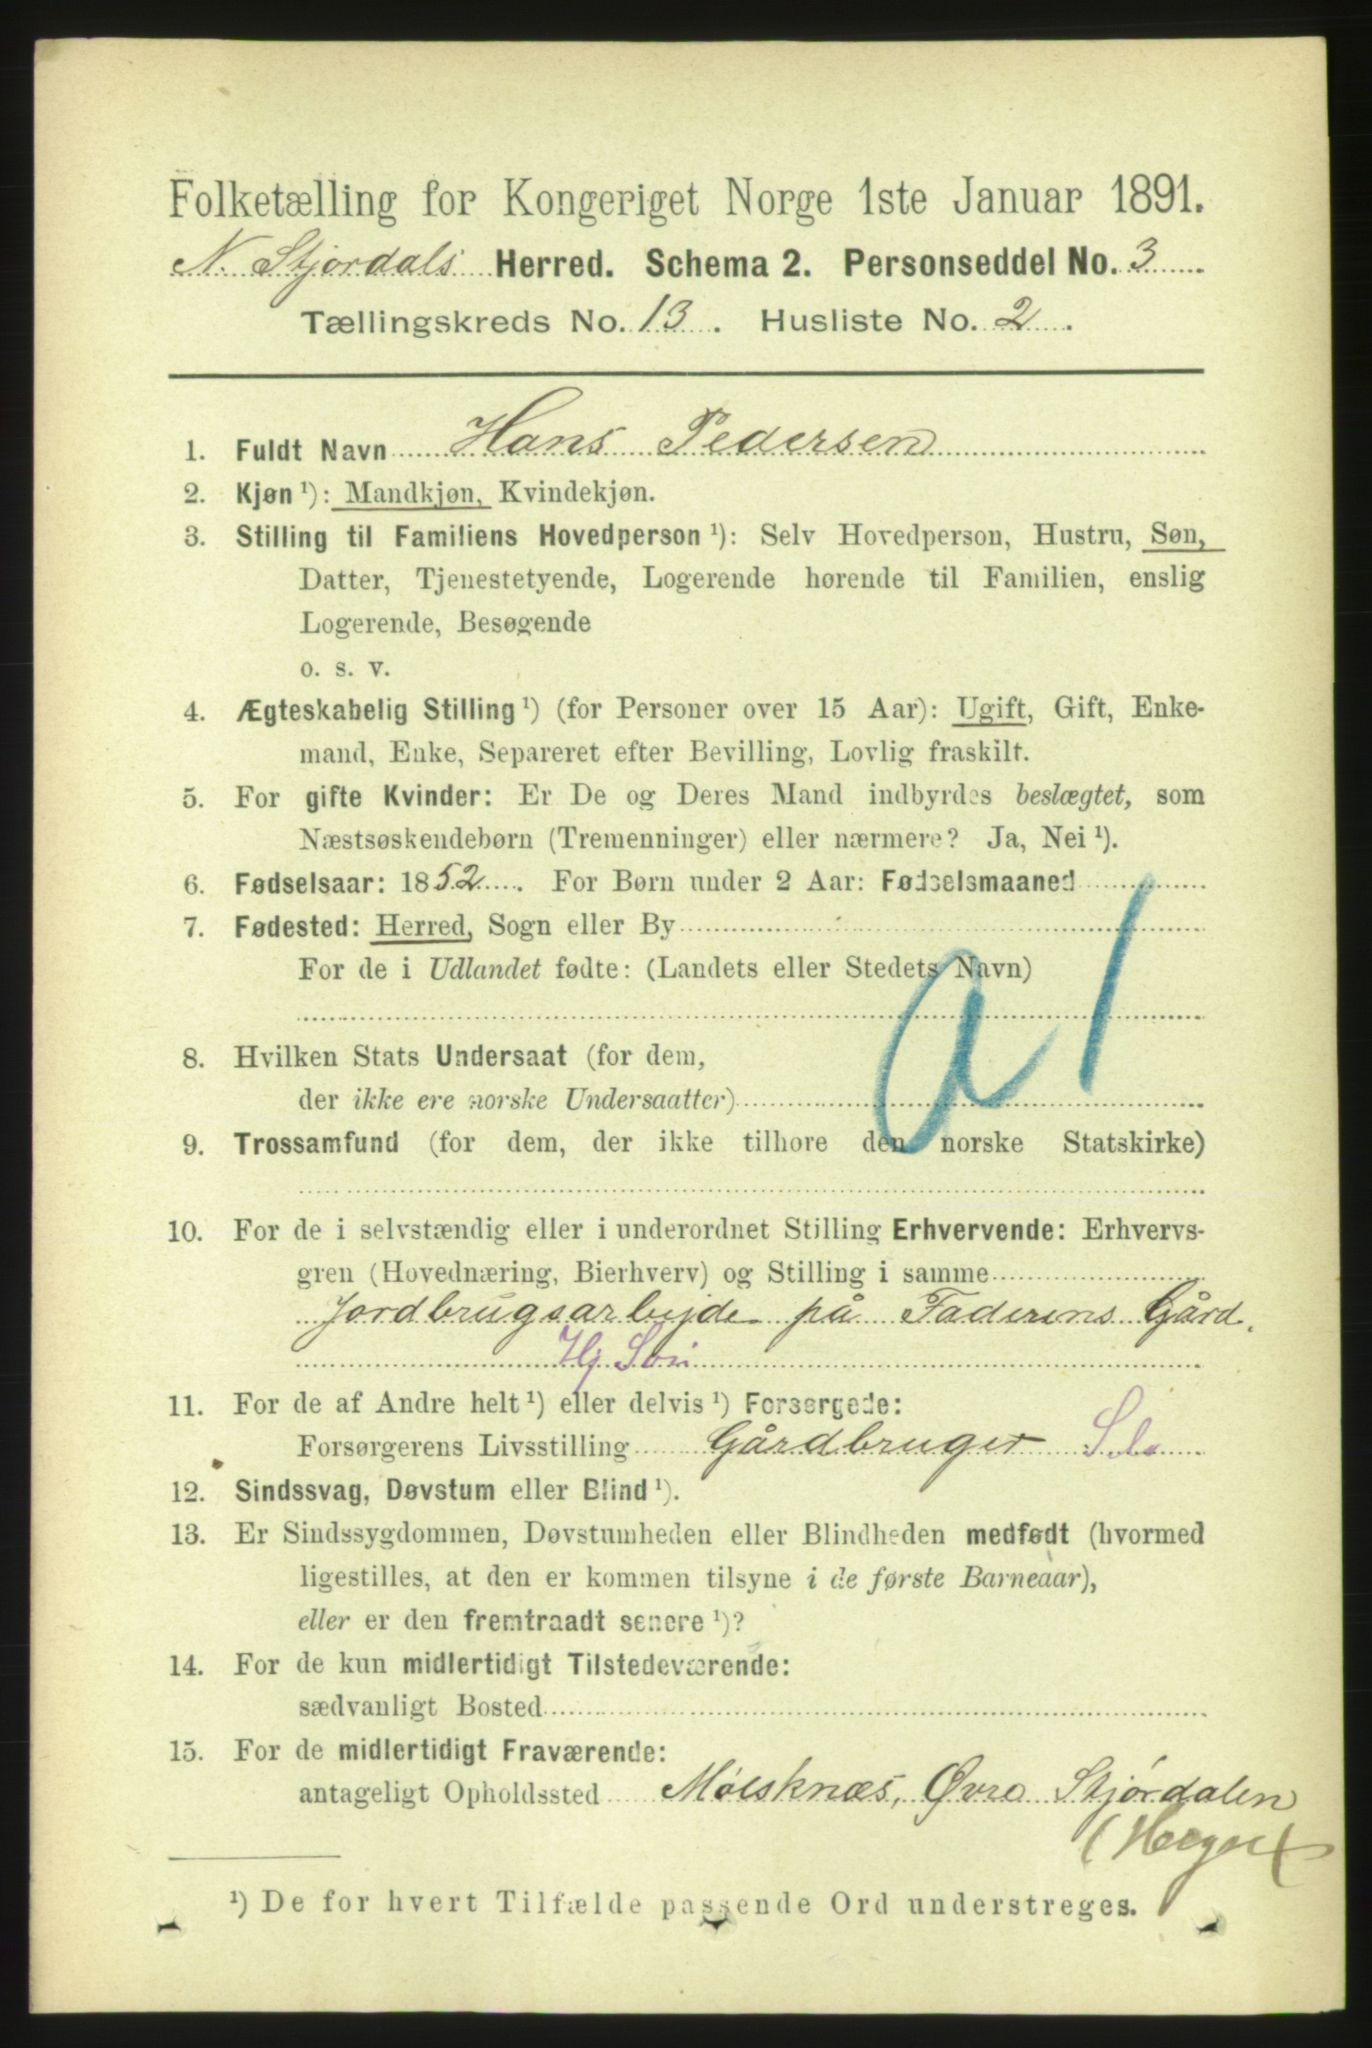 Folketælling for Kongeriget Norge 1ste Januar 1891.
N. Stjørdals Herred. Schema 2. Personseddel No. 3
Tællingskreds No. 13. Husliste No. 2.
1. Fuldt Navn Hans Pedersen
2. Kjøn ¹): Mandkjøn, Kvindekjøn.
3. Stilling til Familiens Hovedperson ¹): Selv Hovedperson, Hustru, Søn,
Datter, Tjenestetyende, Logerende hørende til Familien, enslig
Logerende, Besøgende
o. s. v.
4. Ægteskabelig Stilling ¹) (for Personer over 15 Aar): Ugift, Gift, Enke-
mand, Enke, Separeret efter Bevilling, Lovlig fraskilt.
5. For gifte Kvinder: Er De og Deres Mand indbyrdes beslægtet, som
Næstsøskendebørn (Tremenninger) eller nærmere? Ja, Nei ¹).
6. Fødselsaar: 1852. For Børn under 2 Aar: Fødselsmaaned
7. Fødested: Herred, Sogn eller By
For de i Udlandet fødte: (Landets eller Stedets Navn)
a1
8. Hvilken Stats Undersaat (for dem,
der ikke ere norske Undersaatter)
9. Trossamfund (for dem, der ikke tilhøre den norske Statskirke)
10. For de i selvstændig eller i underordnet Stilling Erhvervende: Erhvervs-
gren (Hovednæring, Bierhverv) og Stilling i samme
Jordbrugsarbejde på Faderens Gård.
Hj Søn
11. For de af Andre helt ¹) eller delvis ¹) Forsørgede:
Forsørgerens Livsstilling Gårdbruger
12. Sindssvag, Døvstum eller Blind ¹).
13. Er Sindssygdommen, Døvstumheden eller Blindheden medfødt (hvormed
ligestilles, at den er kommen tilsyne i de første Barneaar),
eller er den fremtraadt senere ¹)?
14. For de kun midlertidigt Tilstedeværende:
sædvanligt Bosted
15. For de midlertidigt Fraværende:
antageligt Opholdssted Mølsknæs, Øvre Stjørdalen
(Hegre)
¹) De for hvert Tilfælde passende Ord understreges.